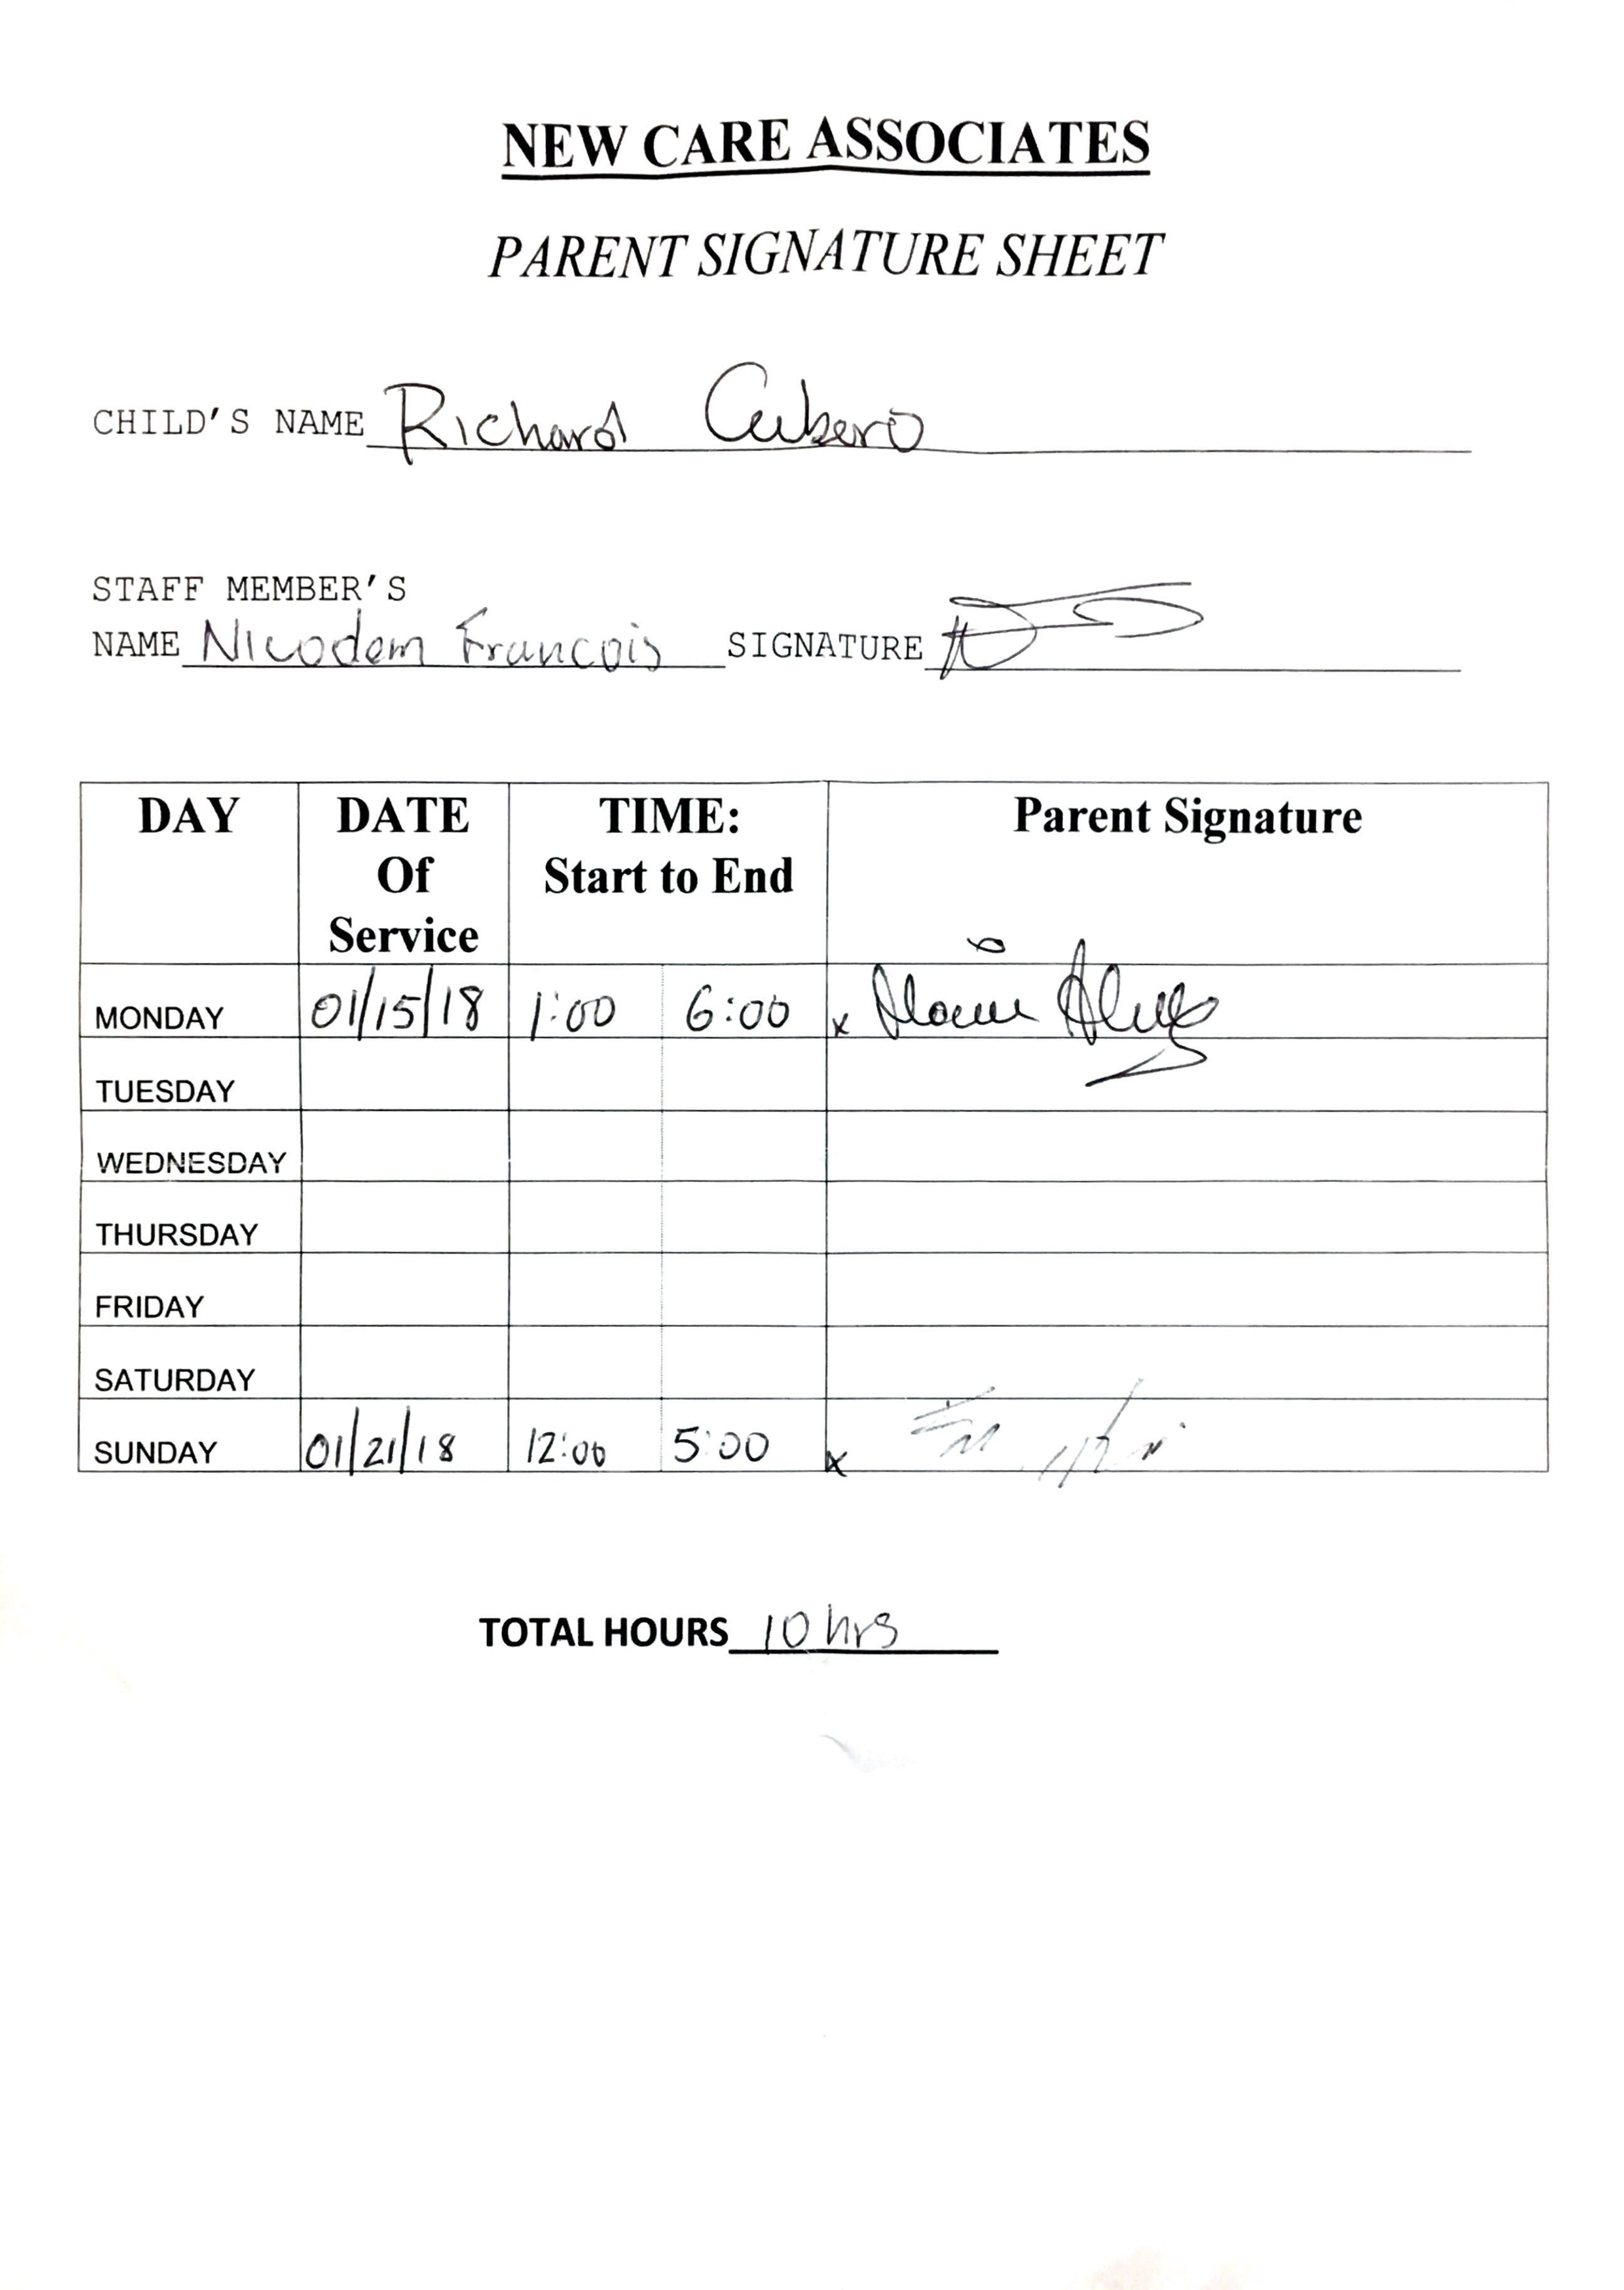 NEW CARE ASSOCIATES
PARENT SIGNATURE SHEET
CHILD'S NAME Richard Cubero
STAFF MEMBER'S
NAME Nicodem Francois SIGNATURE
DAY DATE Of Service TIME: Start to End Parent Signature
MONDAY 01/15/18 1:00 6:00 x
TUESDAY
WEDNESDAY
THURSDAY
FRIDAY
SATURDAY
SUNDAY 01/21/18 12:00 5:00 x
TOTAL HOURS 10 hrs